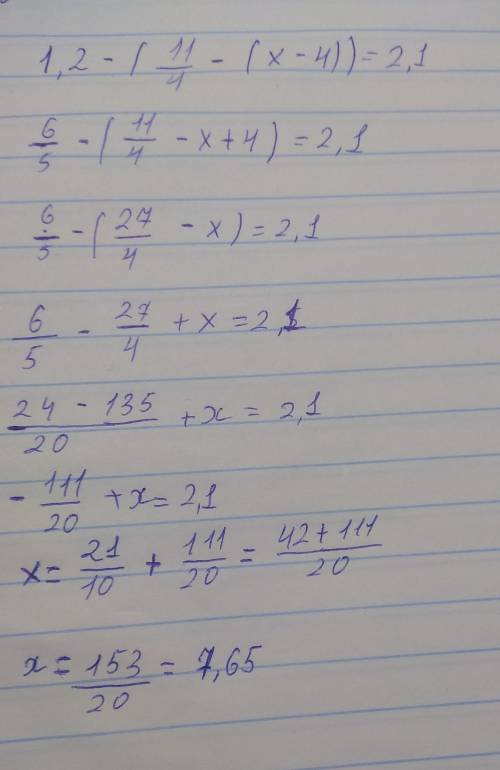 1,2 - (11/4 - (x - 4)) = 2,1
6/5 - (11/4 - x + 4) = 2,1
6/5 - (27/4 - x) = 2,1
6/5 - 27/4 + x = 2,1
(24 - 135)/20 + x = 2,1
- 111/20 + x = 2,1
x = 21/10 + 111/20 = (42 + 111)/20
x = 153/20 = 7,65